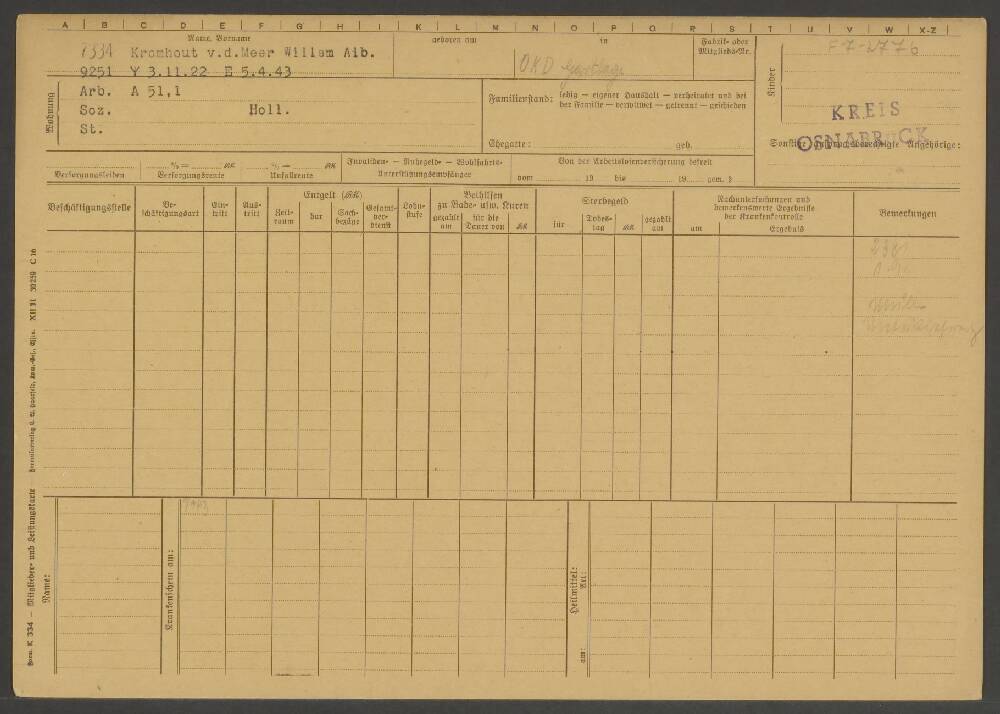 A B C D E F G H I K L M N O P Q R S T U V W X-Z
Name, Vorname geboren am in Fabrik- oder Mitglieds-Nr.
7334 Kromhout v.d.Meer Willem Alb.
9251 Y 3.11.22 E 5.4.43
OKD
F-7-2776
Kinder
Wohnung
Arb. A 51,1
Soz. Holl.
St.
Familienstand: ledig — eigener Haushalt — verheiratet und bei
der Familie — verwitwet — getrennt — geschieden
Ehegatte: geb.
KREIS
OSNABRÜCK
Sonstige anspruchsberechtigte Angehörige:
Versorgungsleiden
%= RM
Versorgungsrente
%= RM
Unfallrente
Invaliden- — Ruhegeld- — Wohlfahrts-
Unterstützungsempfänger
Von der Arbeitslosenversicherung befreit
vom 19 bis 19 gem. §
Beschäftigungsstelle
Be-
schäftigungsart
Ein-
tritt
Aus-
tritt
Entgelt (RM)
Zeit-
raum
bar
Sach-
bezüge
Gesamt-
ver-
dienst
Lohn-
stufe
Beihilfen
zu Bade- usw. Kuren
gezahlt
am
für die
Dauer von
RM
Sterbegeld
für
Todes-
tag
RM
gezahlt
am
Nachuntersuchungen und
bemerkenswerte Ergebnisse
der Krankenkontrolle
am
Ergebnis
Bemerkungen
Name:
Krankenschein am:
1943
Heilmittel:
Art:
am:
Form. K 334 — Mitglieder- und Leistungskarte
XII 31 30259 C 16